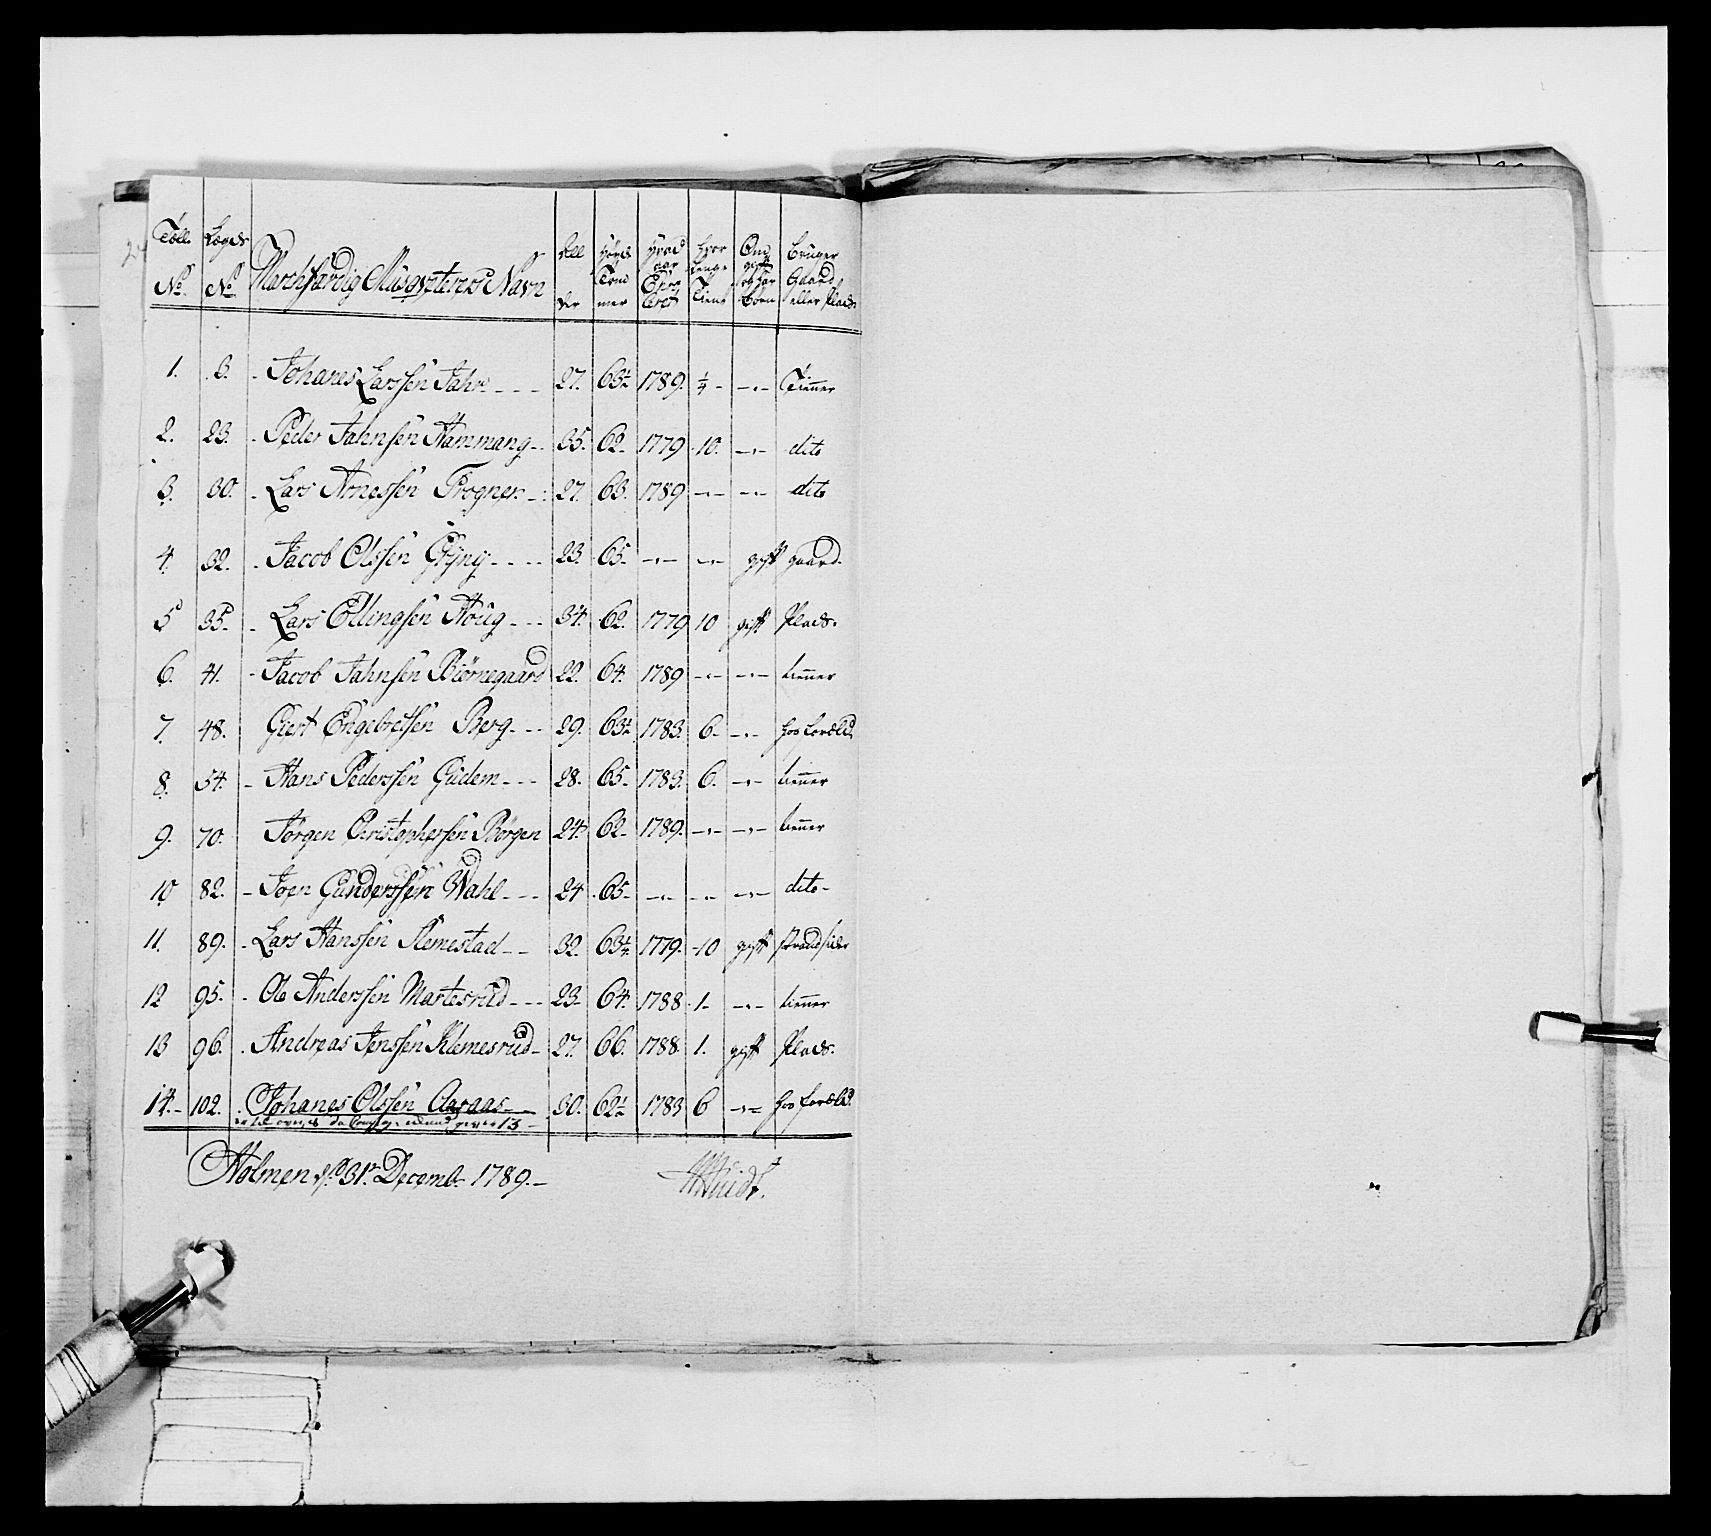 Tall No. Lægds No. Marchfærdig Musqveterers Navn Alder Høyde Tommer Hvad aar Enrolleret Hvor Længe Tient Om gift og har Børn Bruger Gaard eller Plads
1. 3. - Johanes Larssen Jahr - - - 27. 63½ 1789. ¼ - -"- Tienner
2. 23. - Peder Jahnsen Hammang - 35. 62 - 1779 10. -"- dito
3. 30. - Lars Arnessen Frogner - 27. 63. 1789 -"- -"- dito
4. 32. - Jacob Olssen Gyny - - - 23. 65 - -"- -"- gift gaard
5 35. - Lars Ellingsen Houg - - - 34. 62. 1779 10 gift Plads.
6. 41. - Jacob Jahnsen Biørnegaard 22. 64. 1789 -"- -"- tienner
7. 48. Giert Engebretsen Berg - - 29. 63½ 1783. 6 - -"- hos foræld.
8. 54. - Hans Pederssen Gudem - - - 28. 65 - 1783. 6. -"- tienner
9. 70. Jørgen Christophersen Borgen 24. 62 - 1789. -"- -"- tienner
10 82. - Joen Gunderssen Wahl - - - 24 65 - -"- -"- -"- dito -
11. 89. - Lars Hanssen Slemestad - - 32. 63¼ 1779. 10 gift Strandsider
12 95. - Ole Anderssen Martesrud - - - 23 - 64. 1788. 1 - -"- tienner
13 96. - Andreas Jenssen Klemesrud - 27. 66. 1788. 1. gift Plads.
14. - 102. Johanes Olssen Aaraas - - 30. 62½ 1783 6 -"- hos foræld.
13 -
Holmen d. 31te Decemb. 1789. -